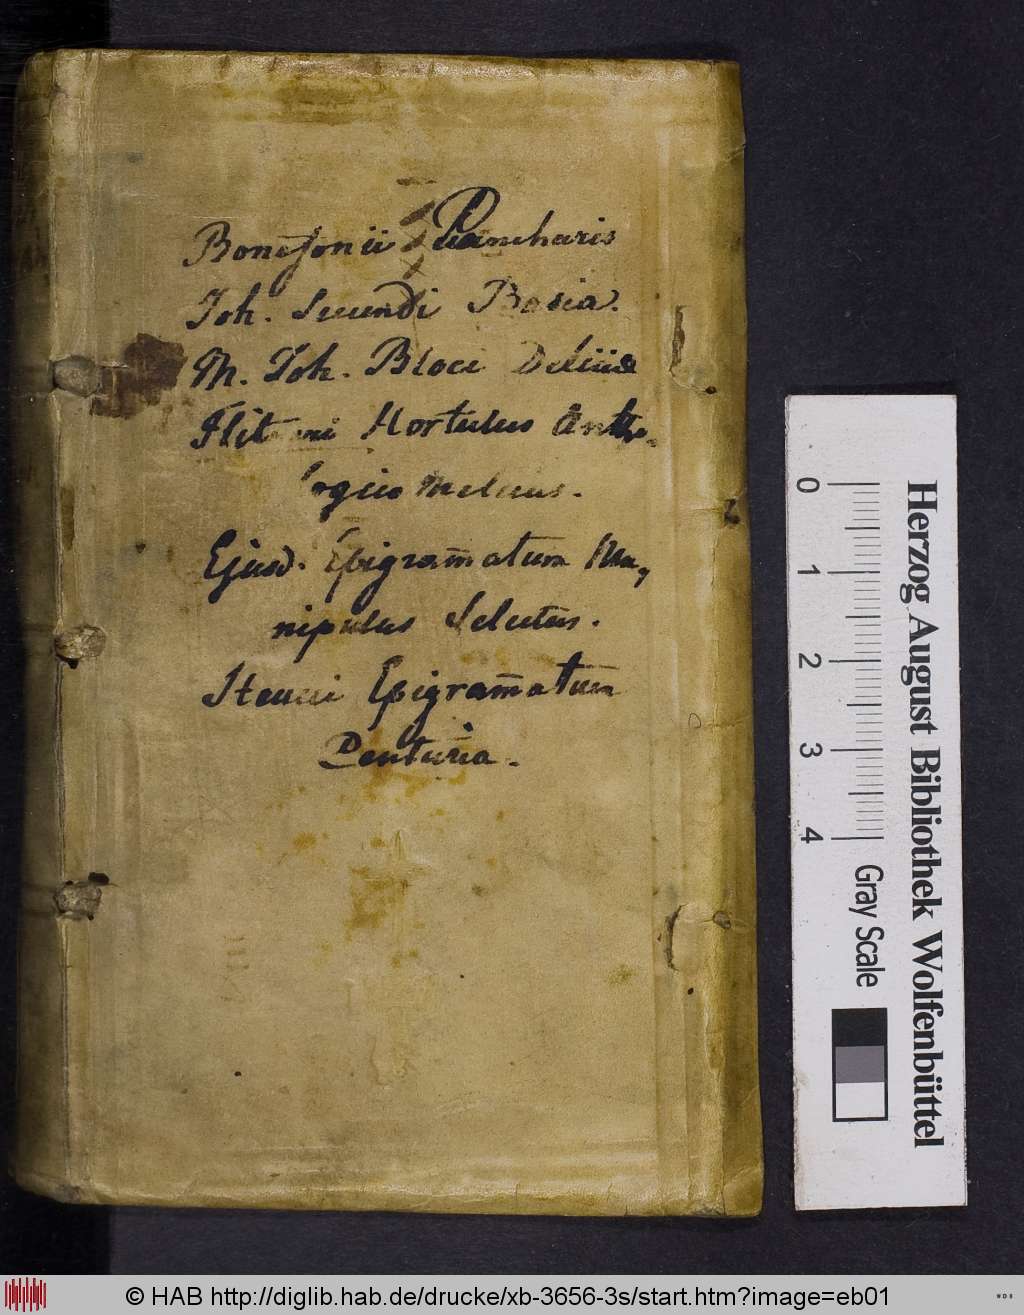 Bonefonii Pancharis
Joh. Secundi Basia.
M. Joh. Bloci Deliciæ
Hortulus Antho,
logico Melicus.
Ejusd. Epigram̄atum Ma,
nipulus Selectus.
Epigram̄atum
Centuria.
Herzog August Bibliothek Wolfenbüttel
0 1 2 3 4 Gray Scale
© HAB http://diglib.hab.de/drucke/xb-3656-3s/start.htm?image=eb01